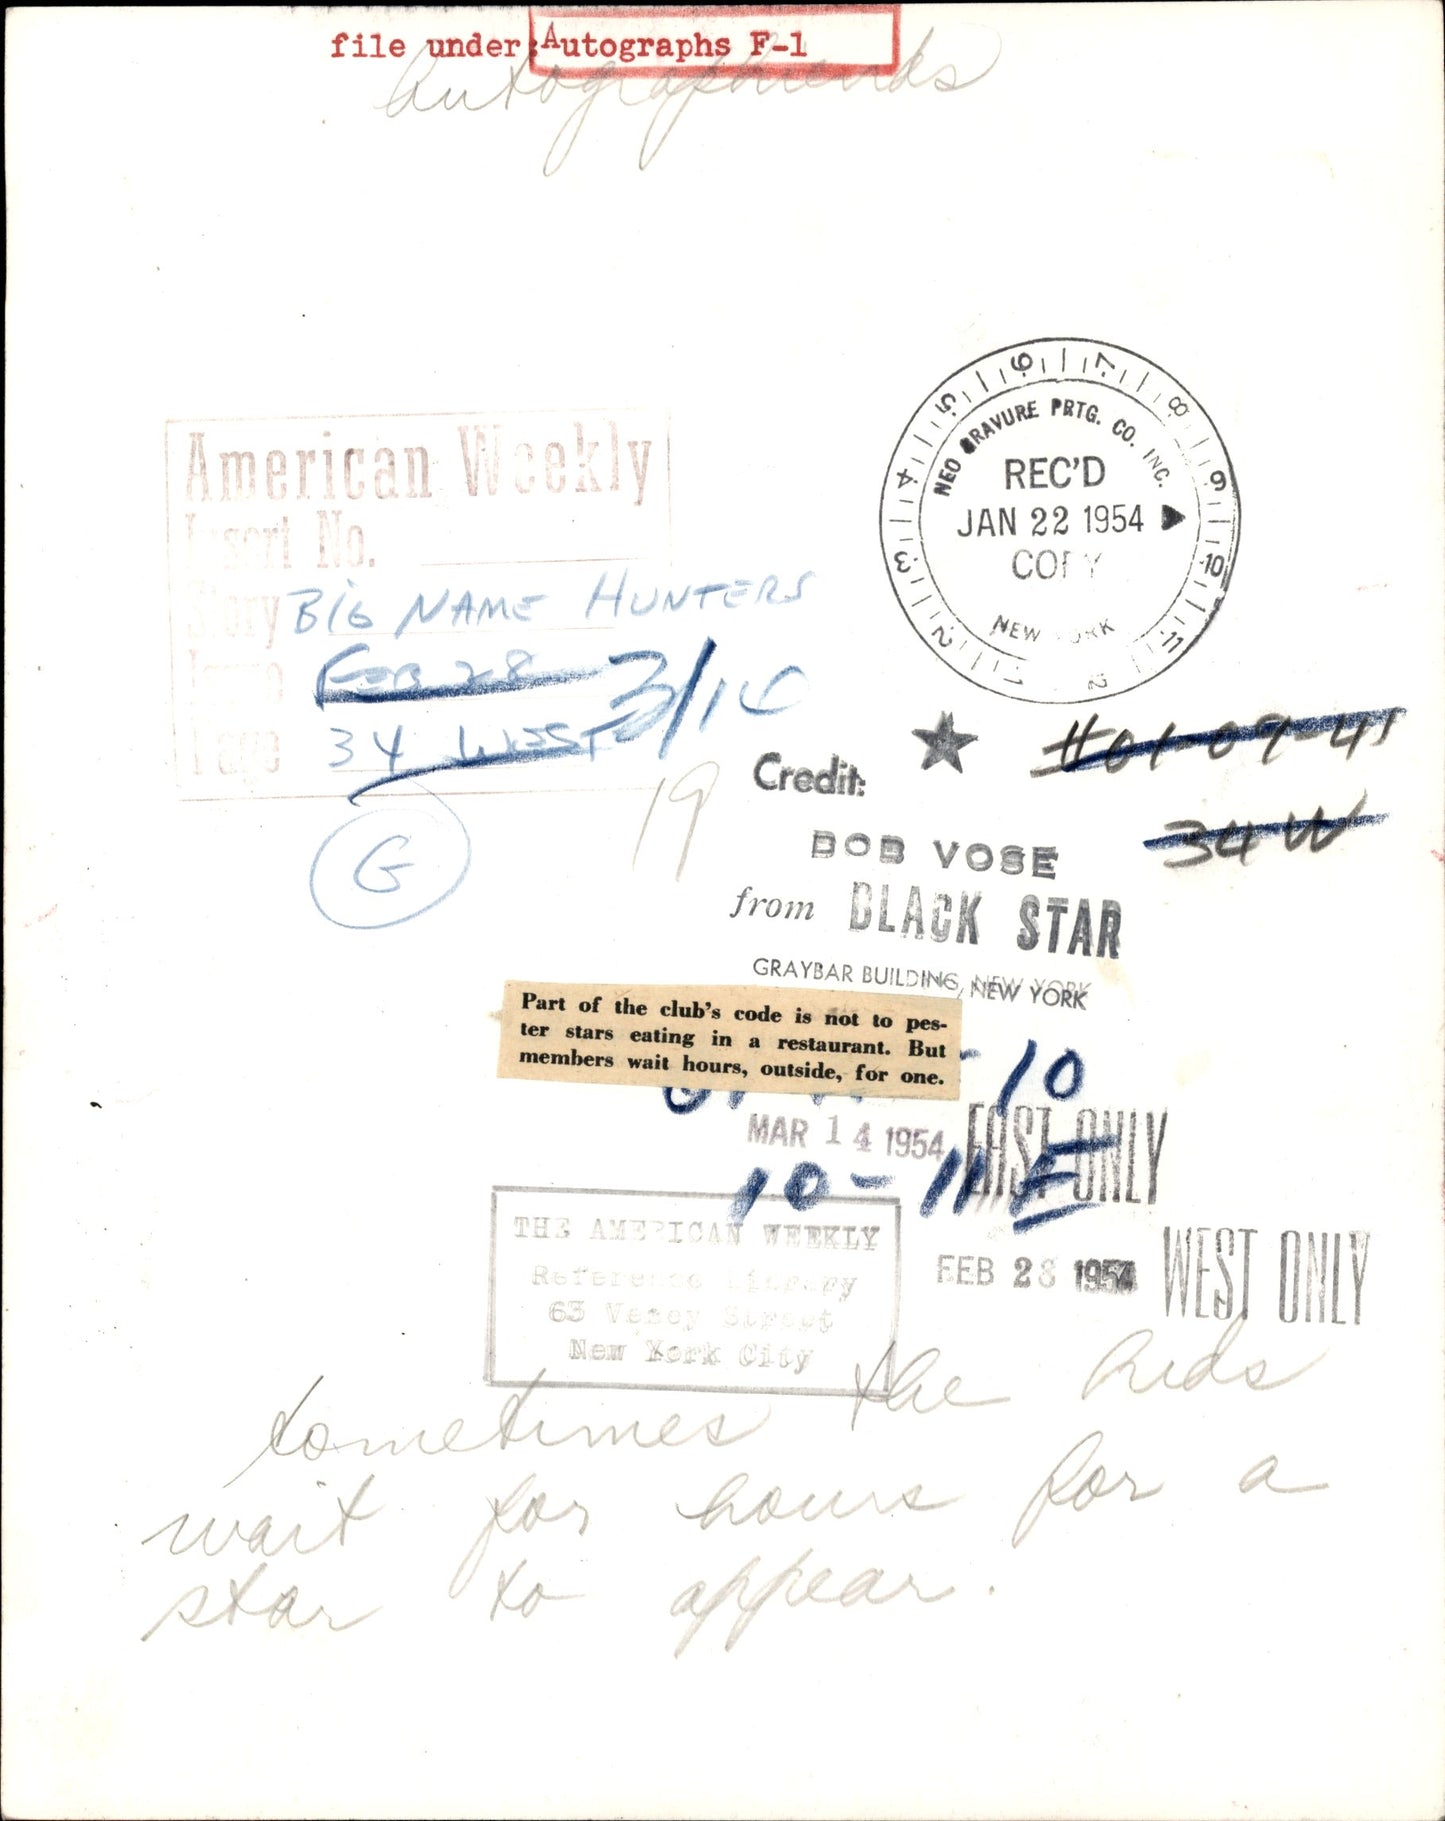 file under: Autographs F-1
Autographiends
6 7 8 9 10 11 2 1 2 3 4 5
NEO GRAVURE PRTG. CO. INC.
REC'D
JAN 22 1954
COPY
NEW YORK
American Weekly
Insert No.
Story BIG NAME HUNTERS
Issue FEB 28 3/14
Page 34 WEST
G
19
#01-09-41
34 W
Credit:
BOB VOSE
from BLACK STAR
GRAYBAR BUILDING, NEW YORK
Part of the club's code is not to pes-
ter stars eating in a restaurant. But
members wait hours, outside, for one.
-10
MAR 14 1954 EAST ONLY
10-11E
FEB 28 1954 WEST ONLY
THE AMERICAN WEEKLY
Reference Library
63 Vesey Street
New York City
sometimes the kids
wait for hours for a
star to appear.